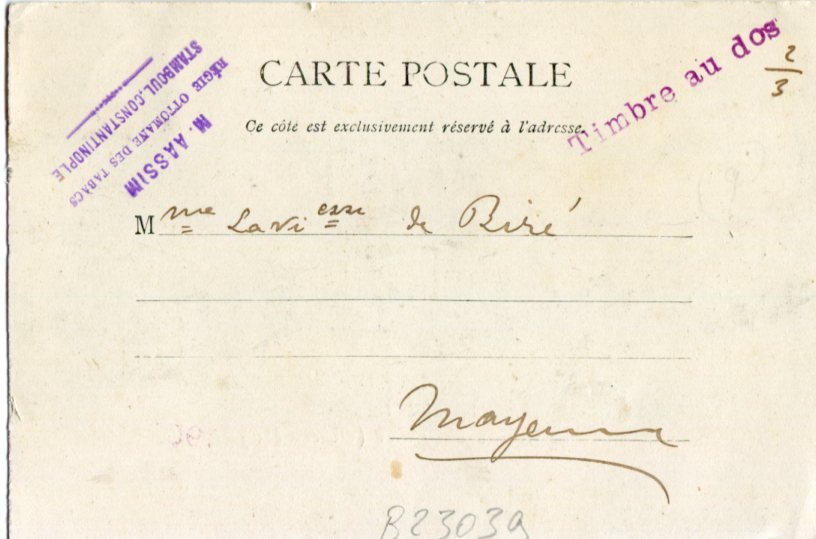 M. AASSIM
RÉGIE OTTOMANE DES TABACS
STAMBOUL.CONSTANTINOPLE
CARTE POSTALE
Timbre au dos
2/3
Ce côté est exclusivement réservé à l'adresse.
Mme La Vicesse de Biré
(9)
Mayenne
B23039